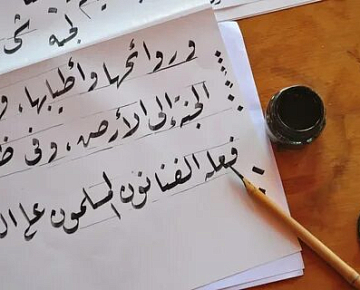 الجنة شى
وروائحها وأطيابها، و
الجنة إلى الأرض، وفى
فعله الفنانون المسلمون على